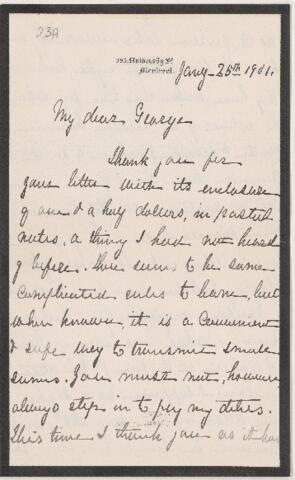 23A
University St
Montreal.
Jany. 25th 1901.
My dear George
Thank you for
your letter with its enclosure
of one & a half dollars, in postal
notes, a thing I had not heard
of before. There seems to be some
complicated rules to learn, but
when known, it is a convenient
& safe way to transmit small
sums. You must not, however
always step in to pay my debts.
This time I thank you as it has